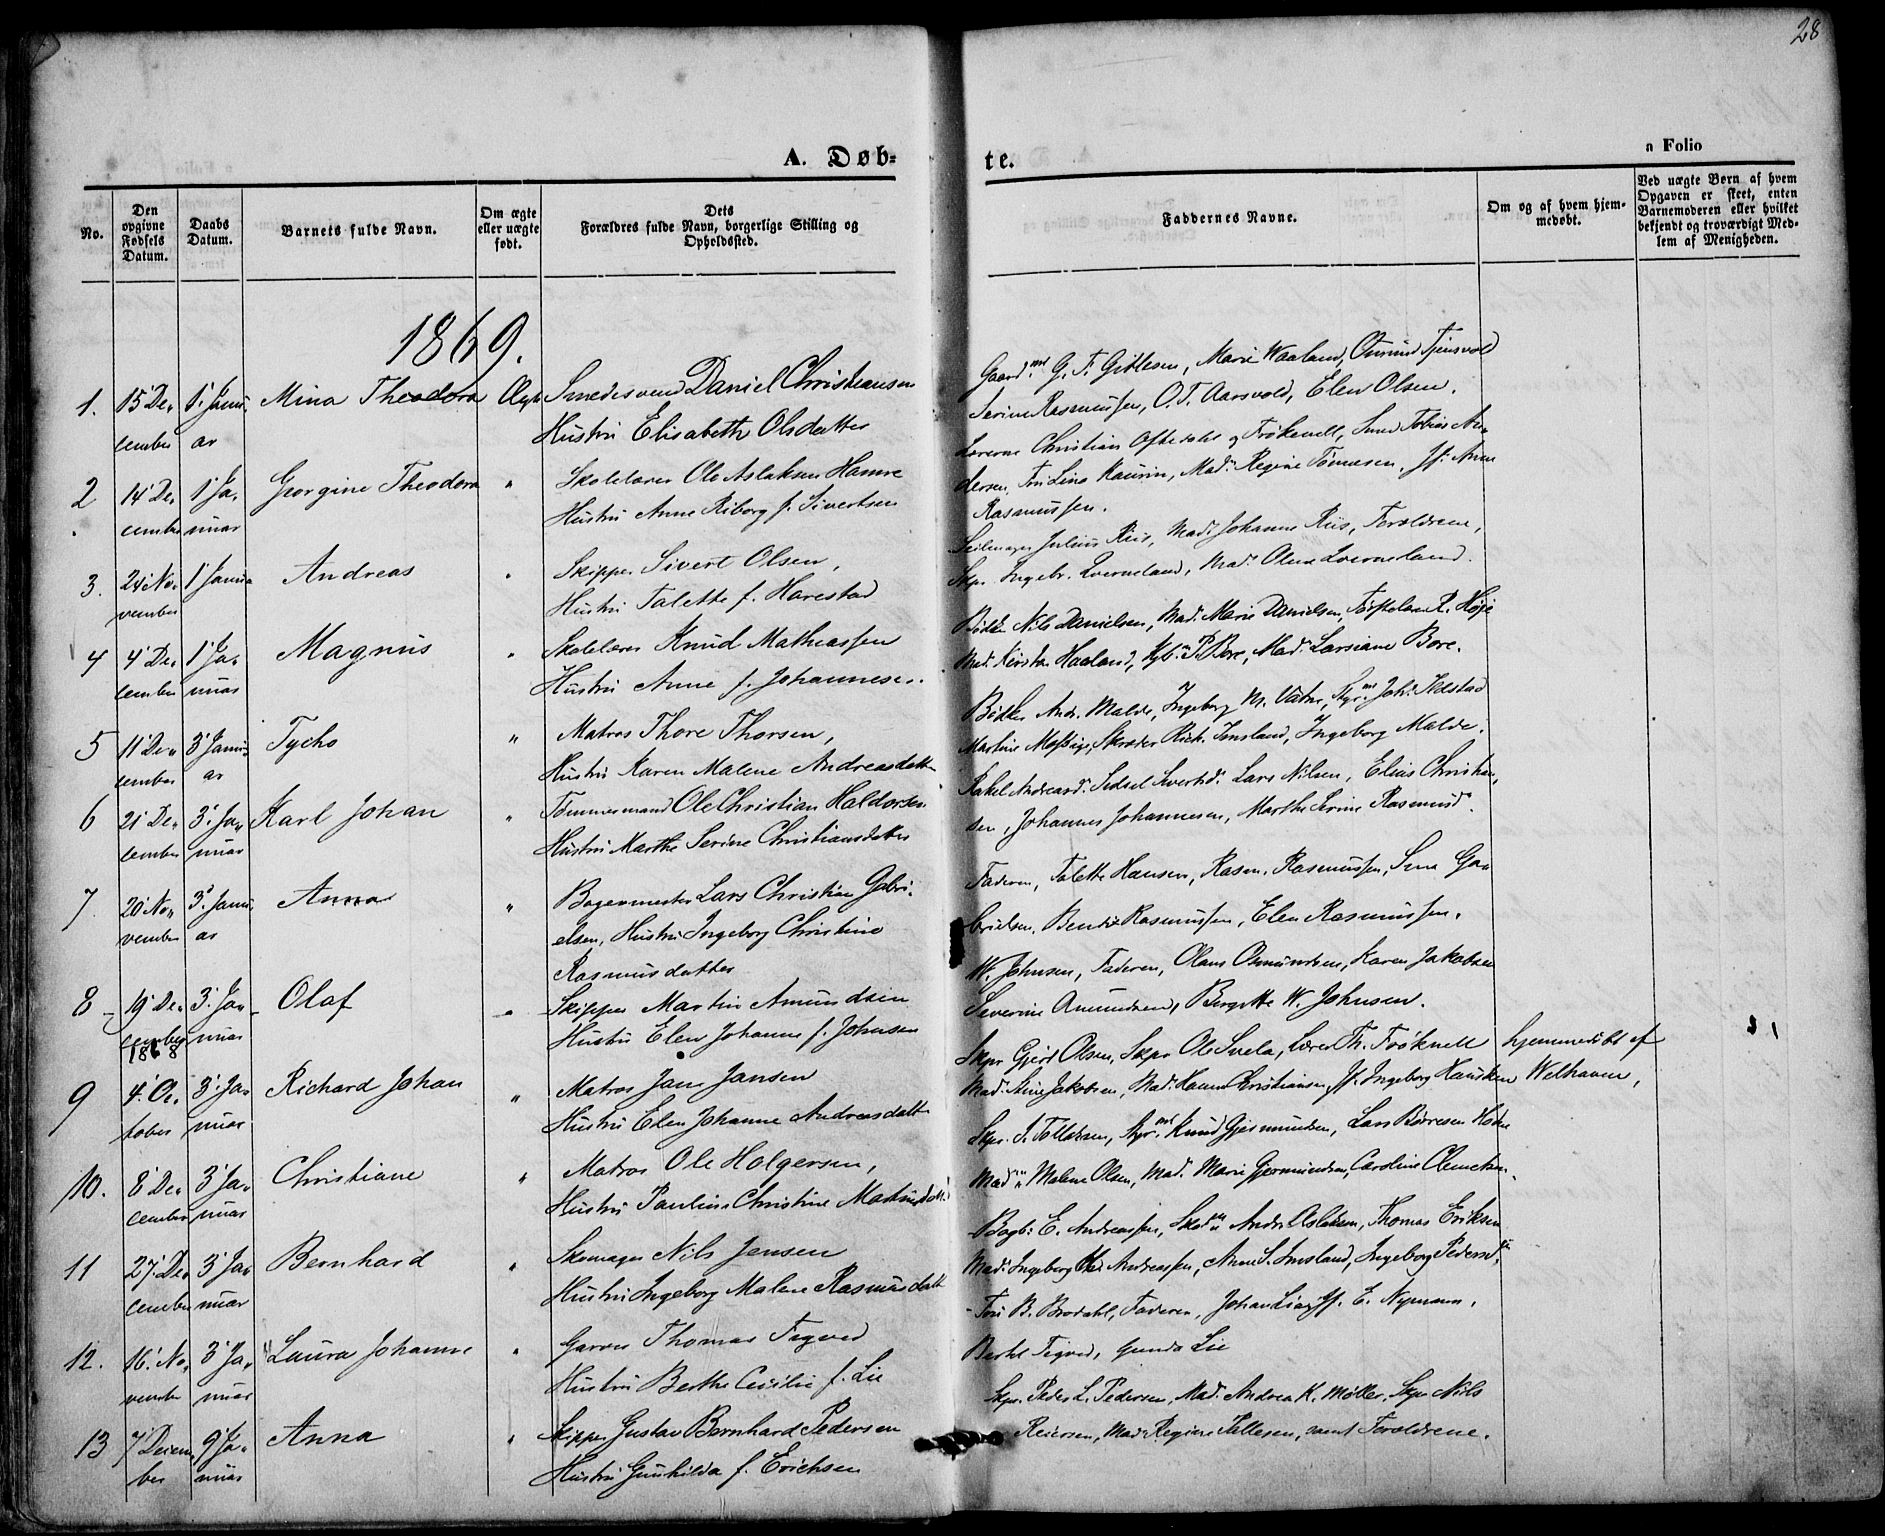 28
A. Døb-
te.
a Folio
No.
Den opgivne Fødsels Datum.
Daabs Datum.
Barnets fulde Navn.
Om ægte eller uægte født.
Dets
Forældres fulde Navn, borgerlige Stilling og
Opholdssted.
Faddernes Navne.
Om og af hvem hjem-
medøbt.
Ved uægte Børn af hvem
Opgaven er skeet, enten
Barnemoderen eller hvilket
bekjendt og troværdigt Med-
lem af Menigheden.
1869.
1. 15' De- 1' Janu- Mina Theodora Ægte Smedesvend Daniel Christiansen
cember ar Hustru Elisabeth Olsdatter
Gaardmd G. T. Gitlesen, Marie Waaland, Tjensvold
Serine Rasmussen, O. T. Aarsvold, Elen Olsen.
2 14' De- 1' Ja- Georgine Theodora " Skolelærer Ole Aslaksen Hamre
cember nuar Hustru Anne Riborg f. Sivertsen
Lærerne Christian Oftedahl og Frøknell, Smed Tobias An-
dersen, Line Kaurin, Mad. Regine Tønnesen, Jf. Anne
Rasmussen.
3. 24' No- 1' Janua Andreas " Skipper Sivert Olsen,
vember Hustru Talette f. Harestad
Seilmager Julius Riis, Mad. Johanne Riis, Forældrene,
Skpr. Ingebr. Sverneland, Mad. Olene Sverneland.
4 4' De- 1' Ja- Magnus " Skolelærer Knud Mathiassen
cember nuar Hustru Anne f. Johannesen.
Bødker Nils Danielsen, Mad. Marie Danielsen, R. Høje
Mad. Haaland, P. Bore, Mad. Larsiane Bore.
5 11' De- 3' Janu- Tycho " Matros Thore Thorsen,
cember ar Hustru Karen Malene Andreasdatter
Bødker Andr. Malde, Ingeborg M. Vatne, Styrmd Joh. Ilstad
Martine Mossige, Skræder Rich. Imsland, Ingeborg Malde.
6 21' De- 3' Ja- Karl Johan " Tømmermand Ole Christian Haldorsen
cember nuar Hustru Marthe Serine Christiansdatter
Rakel Andreasd. Sidsel Sivertsd. Lars Nilsen, Elias Christian-
sen, Johannes Johannesen, Marthe Serine Rasmusd.
7. 20' No- 3' Janu- Anna " Bagermester Lars Christian Gabri-
vember ar elsen, Hustru Ingeborg Christine
Rasmusdatter
Faderen, Talette Hansen, Rasm. Rasmussen, Ga-
brielsen, Rasmussen, Elen Rasmussen.
8 19' De- 3' Ja- Olaf " Skipper Martin Amundsen
cember nuar Hustru Elen Johanne f. Johnsen
W. Johnsen, Faderen, Olaus Osmundsen, Karen Jakobsen
Severine Amundsen, Birgitte W. Johnsen.
1868
9 4' Oc- 3' Ja- Richard Johan " Matros Jens Jansen
tober nuar Hustru Elen Johanne Andreasdatter
Skpr Gjert Olsen, Skpr Ole Svela, Lærer Th. Frøknell
Mad. Stine Jakobsen, Mad. Hanne Christiansen, Jf. Ingeborg Hansken
hjemmedøbt af
Welhaven,
10. 8' De- 3' Ja- Christiane " Matros Ole Holgersen,
cember nuar Hustru Pauline Christine Martinsdatt.
Skpr. T. Tollaksen, Styrmd Knud Gjermundsen, Lars Børresen
Mad. Malene Olsen, Mad. Marie Gjermundsen, Caroline Clemetsen.
11 27' De- 3' Ja- Bernhard " Skomager Nils Jensen
cember nuar Hustru Ingeborg Malene Rasmusdatt
Bagb. E. Andreassen, Andr. Aslaksen, Thomas Eriksen
Mad. Ingeborg Andreassen, Anne S. Imsland, Ingeborg Pedersd.
12. 16' No- 3' Ja- Laura Johanne " Garver Thomas Figved
vember nuar Hustru Berthe Cecilie f. Lie
B. Brodahl, Faderen, Johan Lie, Jf. E. Nyman,
Berthe Figved, Gunda Lie
13 7' Decem- 9' Ja- Anna " Skipper Gustav Bernhard Pedersen
ber nuar Hustru Gunhilda f. Erichsen
Skpr. Peder L. Pedersen, Mad. Andrea K. Møller, Skpr Nils
Reiersen, Mad. Regine Tellesen, samt Forældrene.